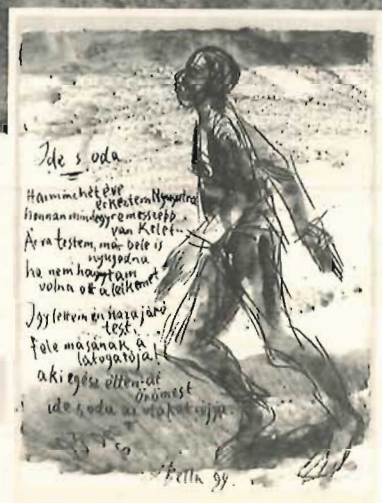 Ide s oda
Harminchét éve
érkeztem Nyugatra
honnan mindegyre messzebb
van Kelet.
Ára testem, már bele is
nyugodna
ha nem hagytam
volna ott a lelkemet
Így lettem én hazajáró
test,
fele másának a
látogatója!
aki egész életen át
örömest
ide s oda az utakat rójja.
Bella Gy.